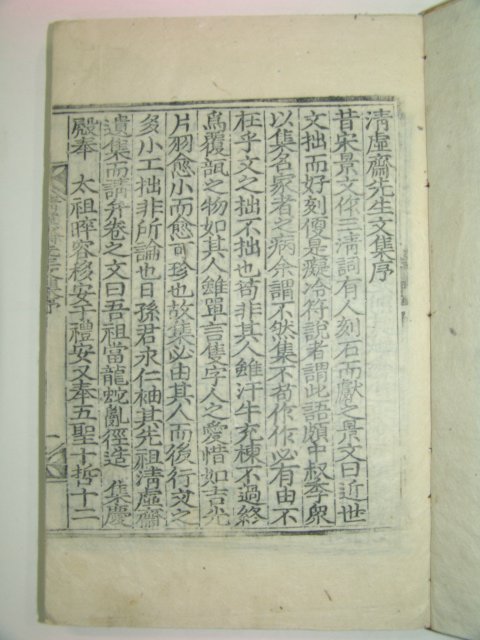 淸虛齋先生文集序
昔宋景文作三淸詞有人刻石而獻之景文曰近世
文拙而好刻是癡冷符說者謂此語頗中叔季衆
以集名家者之病余謂不然集不苟作作必有由不
在乎文之拙不拙也苟非其人雖汗牛充棟不過終
爲覆瓿之物如其人雖單言隻字人之愛惜如吉光
片羽愈小而愈可珍也故集必由其人而後行文之
多小工拙非所論也日孫君永仁袖其先祖淸虛齋
遺集而請弁卷之文曰吾祖當龍蛇亂徑造 集慶
殿奉 太祖晬容移安于禮安又奉五聖十哲十二